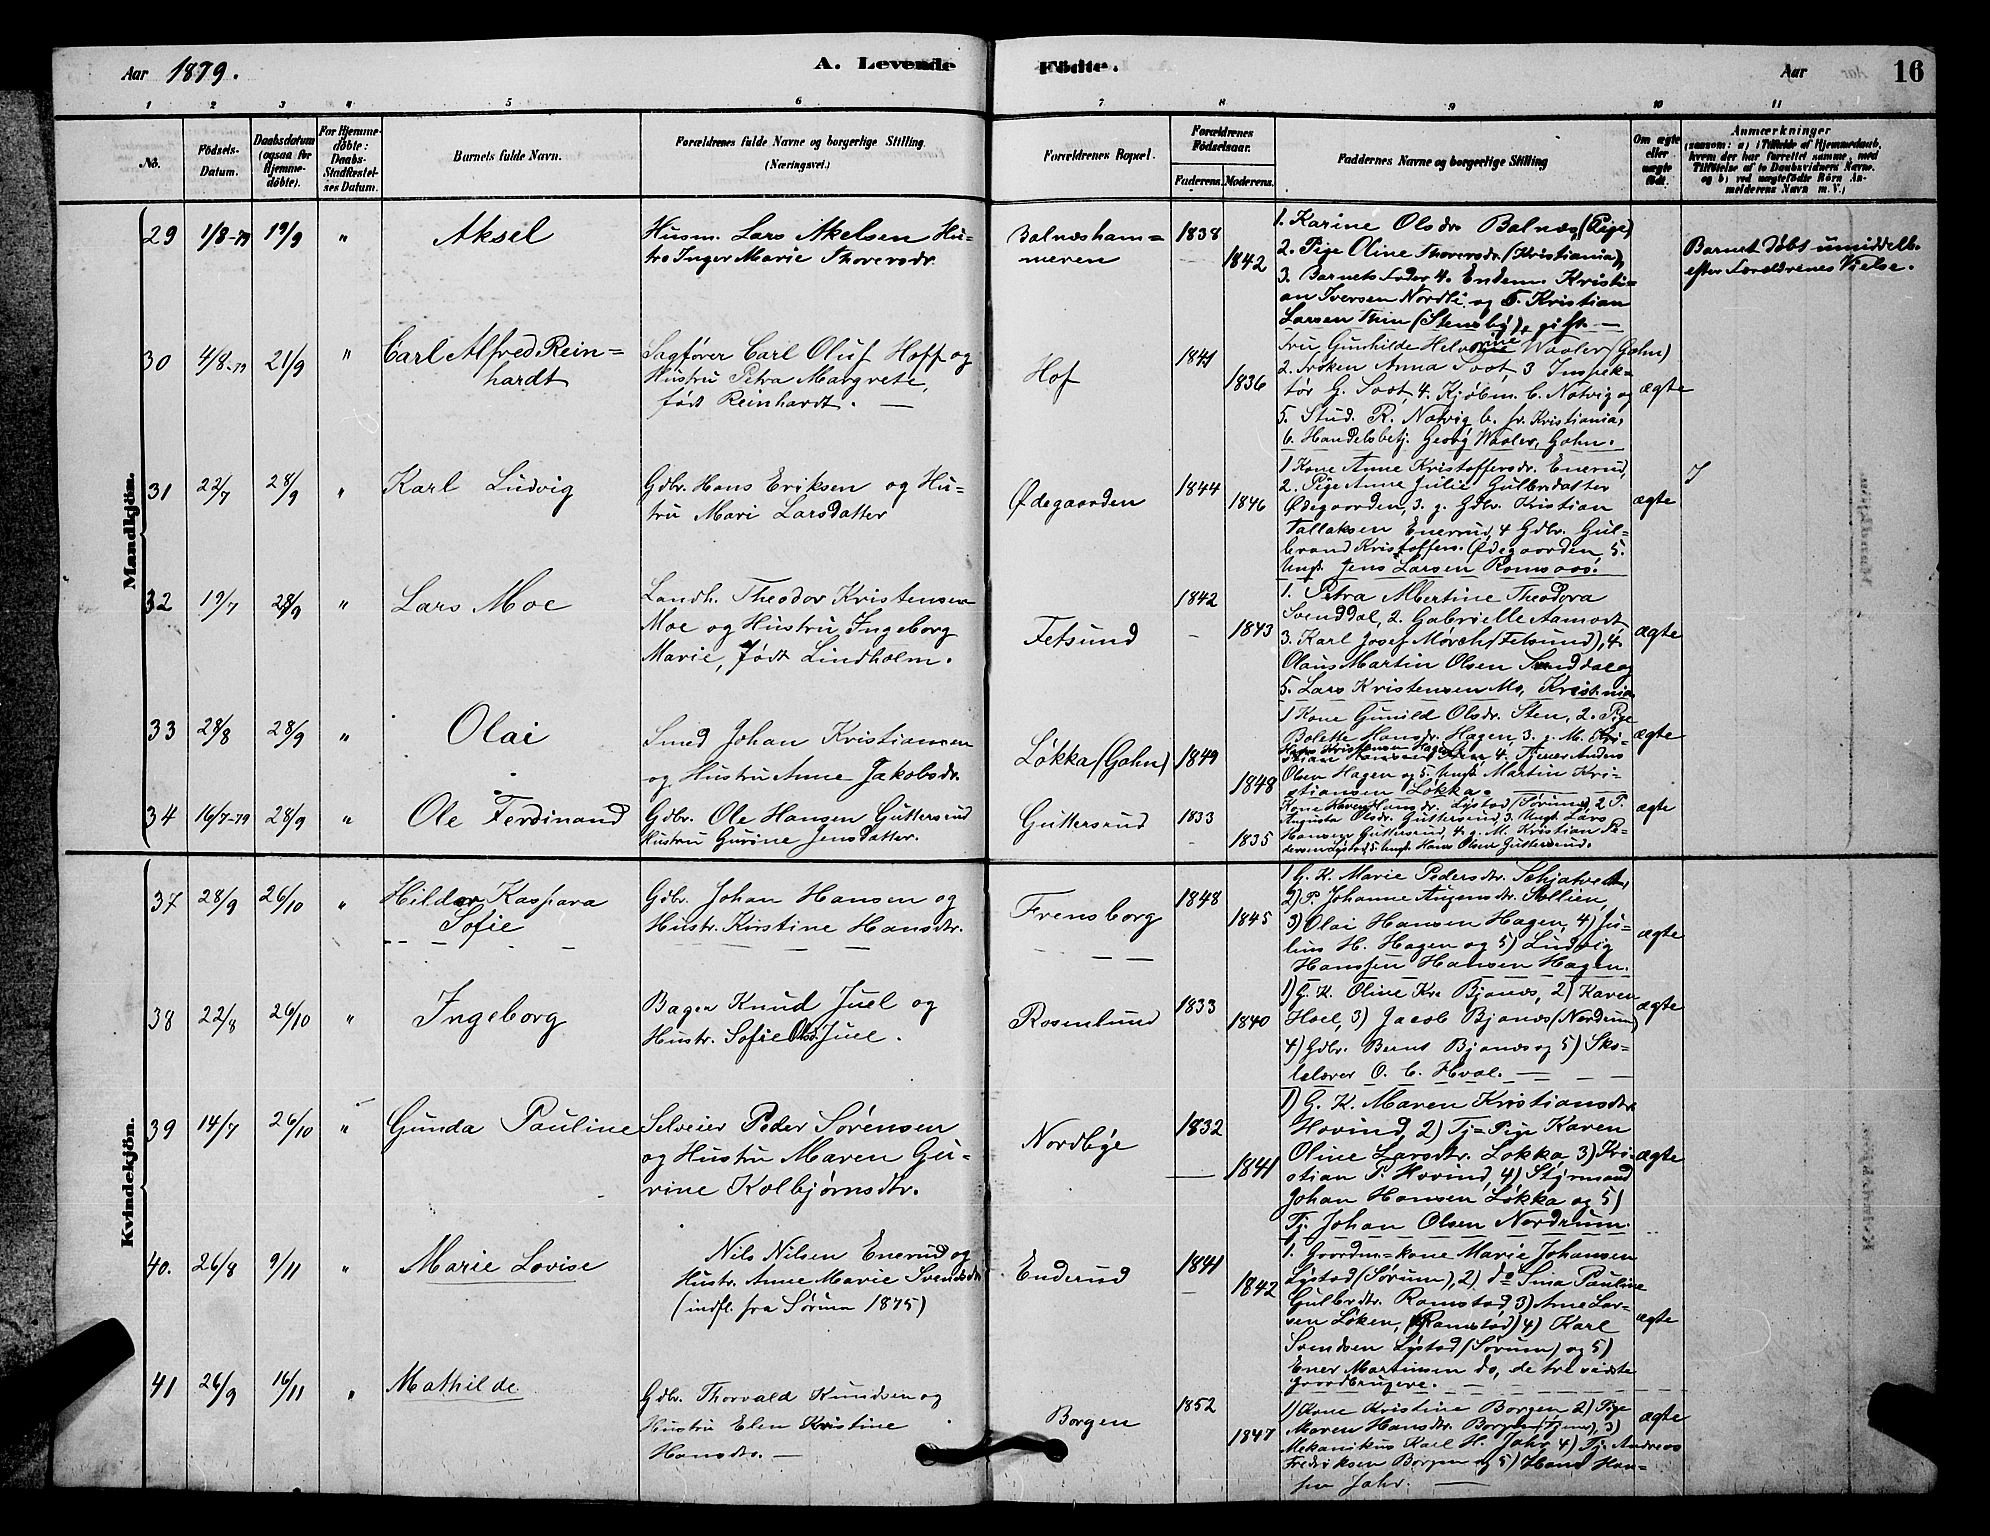 Aar 1879.
A. Levende Födte.
Aar
16
1 2 3 4 5 6 7 8 8 9 10 11
No.
Födsels-
Datum.
Daabsdatum
(ogsaa for
Hjemme-
döbte).
For Hjemme-
döbte:
Daabs-
Stadfæstel-
ses Datum.
Barnets fulde Navn.
Forældrenes fulde Navne og borgerlige Stilling.
(Næringsvei.)
Forældrenes Bopæl.
Forældrenes
Födselsaar.
Faderens. Moderens.
Faddernes Navne og borgerlige Stilling
Om ægte
eller
uægte
födt.
Anmærkninger
(saasom: a) i Tilfælde af Hjemmedaab,
hvem der har forrettet samme, med
Tilföielse af to Daabsvidners Navne.
og b) ved uægtefödte Börn An-
melderens Navn m. V.)
Mandkjön.
29 1/8-79 19/9 " Aksel
Husm. Lars Akelsen Hu-
stru Inger Marie Thoversdr.
Balnæsham=
meren
1838
1842
1. Karine Olsdr. Balnæs, (Pige)
2. Pige Oline Thoversdr. (Kristiania),
3. Barnets Fader 4. Endem. Kristi-
an Iversen Nordli og 5. Kristian
Larsen Thin (Stensby), gift. —
Barnet døbt umiddelb.
efter Forældrenes Vielse.
30 4/8-79 21/9 " Carl Alfred Rein=
hardt
Sagfører Carl Oluf Hoff og
Hustru Petra Margrete,
født Reinhardt. —
Hof
1841
1836
Fru Gunhilde Helvine Waaler (Gahn)
2. Frøken Anna Soot, 3 Inspek-
tør G. Soot, 4. Kjøbm. C. Natvig og
5. Stud. R. Natvig b. fr. Kristiania,
6. Handelsbetj. Georg Waaler, Gahn.
ægte
31 22/7 28/9 " Karl Ludvig
Gdbr. Hans Eriksen og Hu-
stru Mari Larsdatter
Ødegaarden
1844
1846
1 Kone Anne Kristoffersdr. Enerud,
2. Pige Anne Julie Gulbrsdatter
Ødegaarden, 3. g. Gdbr. Kristian
Tallaksen Enerud, 4 Gdbr. Gul-
brand Kristoffers. Ødegaarden, 5.
Ungk. Jens Larsen Romsaas.
ægte
32 19/7 28/9 " Lars Moe
Landh. Theodor Kristensen
Moe og Hustru Ingeborg
Marie, født Lindholm.
Fetsund
1842
1843
1. Petra Albertine Theodora
Svenddal, 2. Gabrielle Aamodt
3. Karl Josef Mørch (Fetsund), 4.
Olaus Martin Olsen Sunddal og
5. Lars Kristensen Mo, Kristinia
ægte
33 28/8 28/9 " Olai
Smed Johan Kristiansen
og Hustru Anne Jakobsdr.
Løkka (Gahn)
1849
1848
1 Kone Gunild Olsdr. Sten, 2. Pige
Bolette Hansdr. Hagen 3. g. M. Kri-
4. Tjener Anders
Olsen Hagen og 5. Ungk. Martin Kri-
stiansen Løkka.
ægte
34 16/7-79 28/9 " Ole Ferdinand
Gdbr. Ole Hansen Guttersrud
Hustru Gurine Jensdatter.
Guttersrud
1833
1835
Kone Karen Hansdr. Lystad (Sørum), 2 P.
Augusta Olsdr. Guttersrud 3. Ungk. Lars
Hansen Guttersrud, 4. g. M. Kristian Pe-
dersen Lystad, 5. Ungk. Hans Olsen Guttersrud.
ægte
Kvindekjön.
37 28/9 26/10 " Hilda Kaspara
Sofie
Gdbr. Johan Hansen og
Hustr. Kirstine Hansdtr.
Frensborg
1848
1845
1) G. K. Marie Pedersdtr. Schjatvedt,
2) P. Johanne Augensdtr. Stollien,
3) Olai Hansen Hagen, 4) Ju-
lius H. Hagen og 5) Ludvig
Hanssen Hansen Hagen.
ægte
38 22/8 26/10 " Ingeborg
Bager Knud Juel og
Hustr. Sofie Olsd. Juel.
Rosenlund
1833
1840
1) G. K. Oline Kr. Bjanæs, 2) Karen
Hoel, 3) Jacob Bjanæs (Nordrum)
4) Gdbr. Bernt Bjanæs og 5) Sko-
lelærer O. C. Hval. —
ægte
39 14/7 26/10 " Gunda Pauline
Selveier Peder Sørensen
og Hustru Maren Gu-
rine Kolbjørnsdtr.
Nordbye
1832
1841
1) G. K. Maren Kristiansdtr.
Hovind, 2) Tj=Pige Karen
Oline Larsdtr. Løkka 3) Kri-
stian P. Hovind, 4) Styrmand
Johan Hansen Løkka og 5)
Tj. Johan Olsen Nordrum.
ægte
40. 26/8 9/11 " Marie Lovise
Nils Nilsen Enerud og
Hustr. Anne Marie Svendsdtr
(indfl. fra Sørum 1875)
Enderud
1841
1842
1. Gaardm=kone Marie Johansen
Lystad (Sørum), 2) do Sina Pauline
Gulbrdtr. Ramstad 3) Arne Lar-
sen Løken, (Ramstad) 4) Karl
Svendsen Lystad (Sørum) og 5)
Ener Martinsen do, de tre sidste
gaardbrugere. —
ægte
41 26/9 16/11 " Mathilde
Gdbr. Thorvald Knudsen og
Hustru Elen Kristine
Hansdtr. —
Borgen
1852
1847
1) Kone Kristine Borgen 2) Pige
Maren Hansdtr. Borgen (tjener), 3)
Mekanikus Karl H. Jahr 4) Tj. Andreas
Fredriksen Borgen og 5) Hans Han-
sen Jahr.
ægte